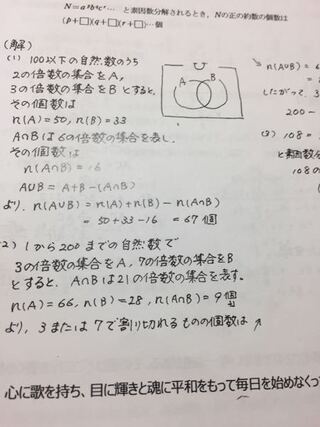 N=a^p b^q c^r … と素因数分解されるとき，Nの正の約数の個数は
(p+□)(q+□)(r+□)…個
(解)
(1) 100以下の自然数のうち
2の倍数の集合をA,
3の倍数の集合をBとすると,
その個数は
n(A)=50, n(B)=33
A∩Bは6の倍数の集合を表し,
その個数は
n(A∩B)=16
A∪B = A+B-(A∩B)
より, n(A∪B) = n(A)+n(B)-n(A∩B)
= 50+33-16 = 67個
2) 1から200までの自然数で
3の倍数の集合をA, 7の倍数の集合をB
とすると, A∩Bは21の倍数の集合を表す.
n(A)=66, n(B)=28, n(A∩B)=9個
より, 3または7で割り切れるものの個数は↗
A
B
n(A∪B)=6
したがって, 3
200-
(3) 108=
と素因数
108の
心に歌を持ち、目に輝きと魂に平和をもって毎日を始めなくっ